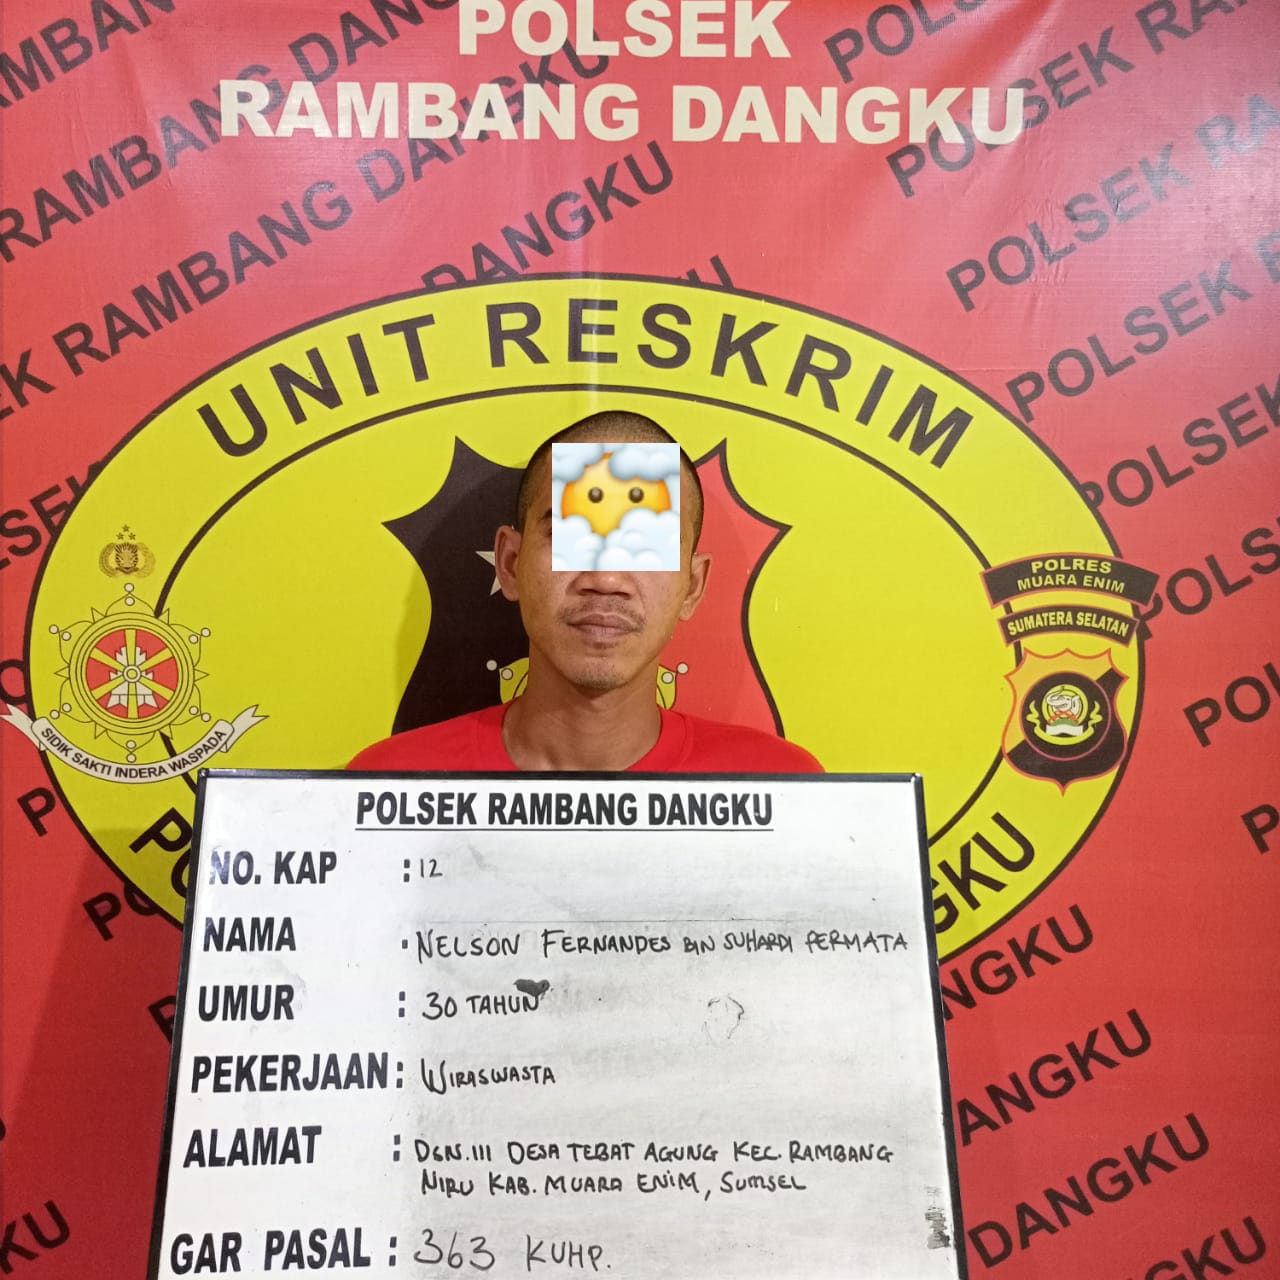 POLSEK
RAMBANG DANGKU
UNIT RESKRIM
POLRES
MUARA ENIM
SUMATERA SELATAN
SIDIK SAKTI INDERA WASPADA
POLSEK RAMBANG DANGKU
NO. KAP : 12
NAMA : NELSON FERNANDES BIN SUHARDI PERMATA
UMUR : 30 TAHUN
PEKERJAAN : WIRASWASTA
ALAMAT : DSN. III DESA TEBAT AGUNG KEC. RAMBANG
NIRU KAB. MUARA ENIM, SUMSEL
GAR PASAL : 363 KUHP.